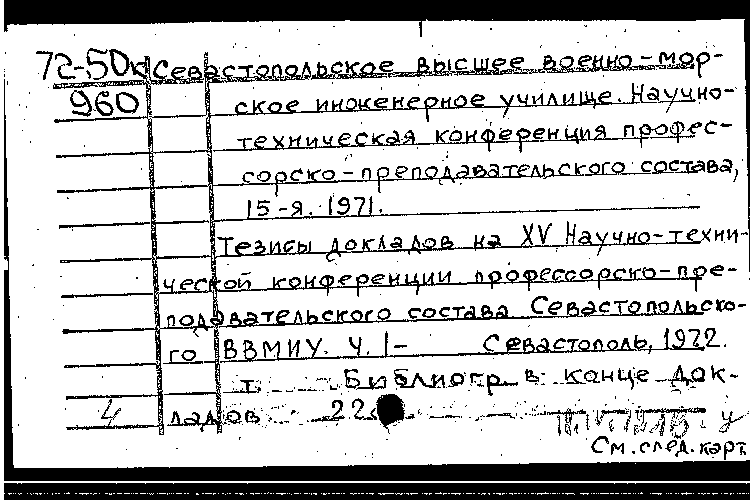 72-50к Севастопольское высшее военно-мор-
960 ское инженерное училище. Научно-
техническая конференция профес-
сорско-преподавательского состава,
15-я. 1971.
Тезисы докладов на XV Научно-техни-
ческой конференции профессорско-пре-
подавательского состава Севастопольско-
го ВВМИУ. Ч. I- Севастополь, 1972.
т. Библиогр. в конце док-
4 ладов 22
См. след. карт.